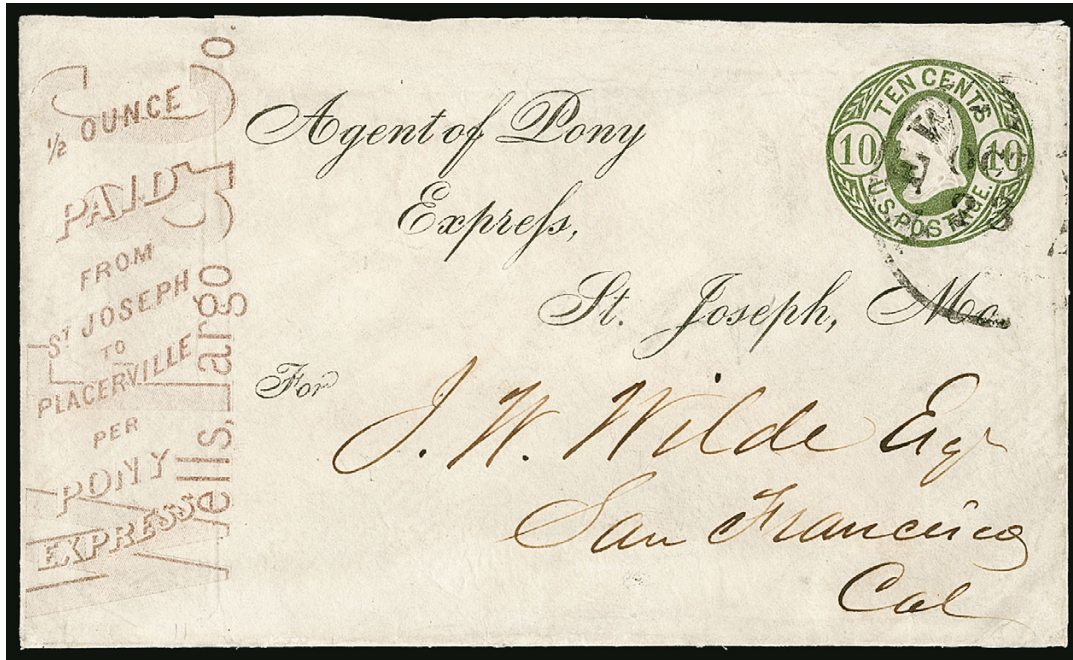 Wells, Fargo & Co.
½ OUNCE
PAID
FROM
ST JOSEPH
TO
PLACERVILLE
PER
PONY
EXPRESS
Agent of Pony
Express,
St. Joseph, Mo.
For
J. W. Wilde Esqr
San Francisco
Cal
TEN CENTS
10 10
U.S. POSTAGE.